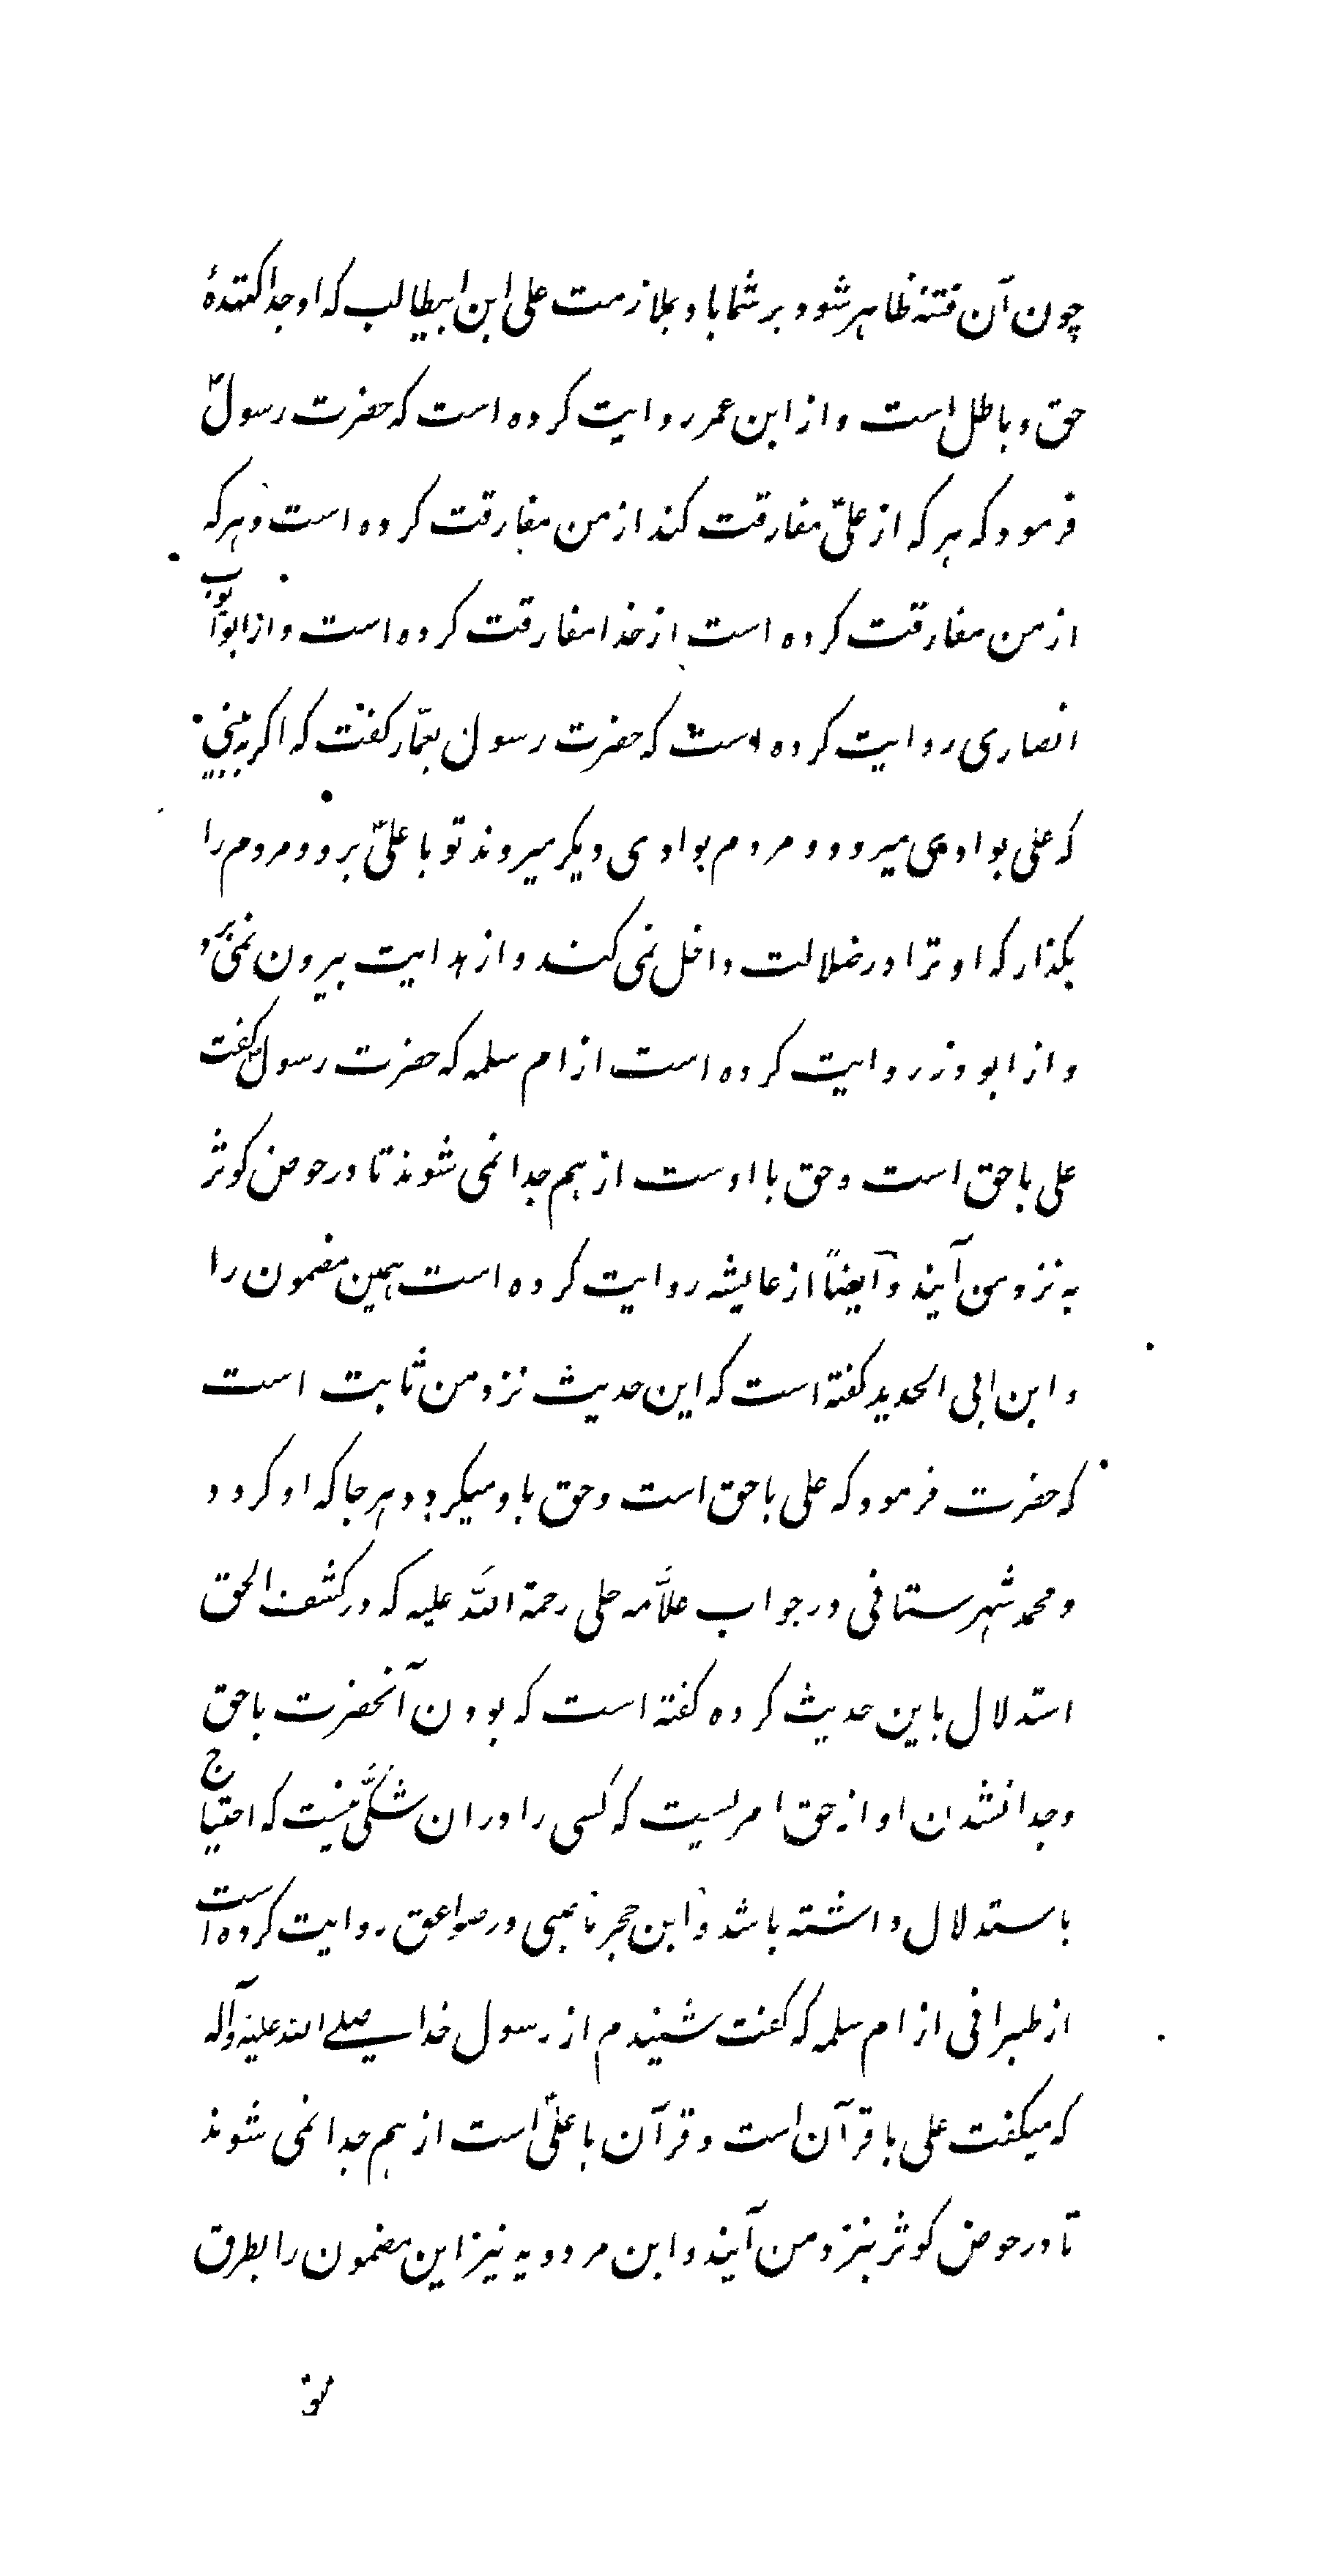 چون آن فتنه ظاهر شود بر شما باد بملازمت علی ابن ابیطالب که او جدا کنندهٔ
حق و باطل است و از ابن عمر روایت کرده است که حضرت رسول ؐ
فرمود که هر که از علیؑ مفارقت کند از من مفارقت کرده است و هر که
از من مفارقت کرده است از خدا مفارقت کرده است و از ابو ایوب
انصاری روایت کرده است که حضرت رسول بعمّار گفت که اگر به بینی
که علی بوادی میرود و مردم بوادی دیگر میروند تو با علیؑ برو و مردم را
بگذار که او ترا در ضلالت داخل نمی کند و از هدایت بیرون نمی برد
و از ابو ذر روایت کرده است از ام سلمه که حضرت رسول گفت
علی با حق است و حق با اوست از هم جدا نمی شوند تا در حوض کوثر
به نزد من آیند و ایضاً از عایشه روایت کرده است همین مضمون را
و ابن ابی الحدید گفته است که این حدیث نزد من ثابت است
که حضرت فرمود که علی با حق است و حق با او میگردد هر جا که او گردد
و محمد شهرستانی در جواب علاّمه حلی رحمة اللّه علیه که در کشف الحق
استدلال باین حدیث کرده گفته است که بودن آنحضرت با حق
و جدا نشدن او از حق امریست که کسی را در ان شکّی نیست که احتیاج
باستدلال داشته باشد و ابن حجر ناصبی در صواعق روایت کرده است
از طبرانی از ام سلمه که گفت شنیدم از رسول خدا صلے الله علیه و آله
که میگفت علی با قرآن است و قرآن با علیؑ است از هم جدا نمی شوند
تا در حوض کوثر بنزد من آیند و ابن مردویه نیز این مضمون را بطرق